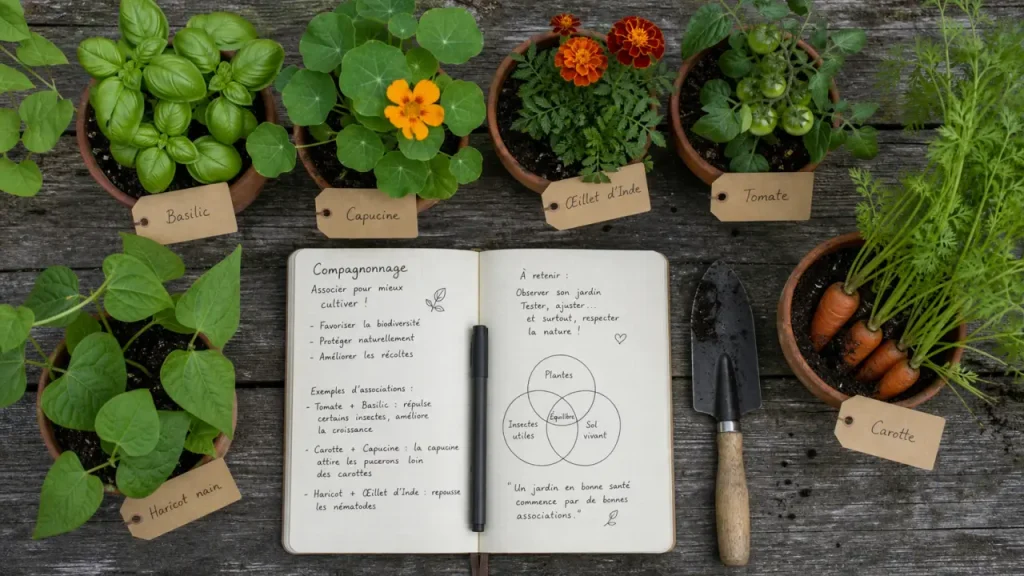 Basilic
Capucine
Œillet d'Inde
Tomate
Haricot nain
Carotte
Compagnonnage
Associer pour mieux
cultiver !
- Favoriser la biodiversité
- Protéger naturellement
- Améliorer les récoltes
Exemples d'associations :
- Tomate + Basilic : répulse
certains insectes, améliore
la croissance
- Carotte + Capucine : la capucine
attire les pucerons loin
des carottes
- Haricot + Œillet d'Inde : repousse
les nématodes
À retenir :
Observer son jardin
Tester, ajuster...
et surtout, respecter
la nature !
Plantes
Équilibre
Insectes
utiles
Sol
vivant
"Un jardin en bonne santé
commence par de bonnes
associations."